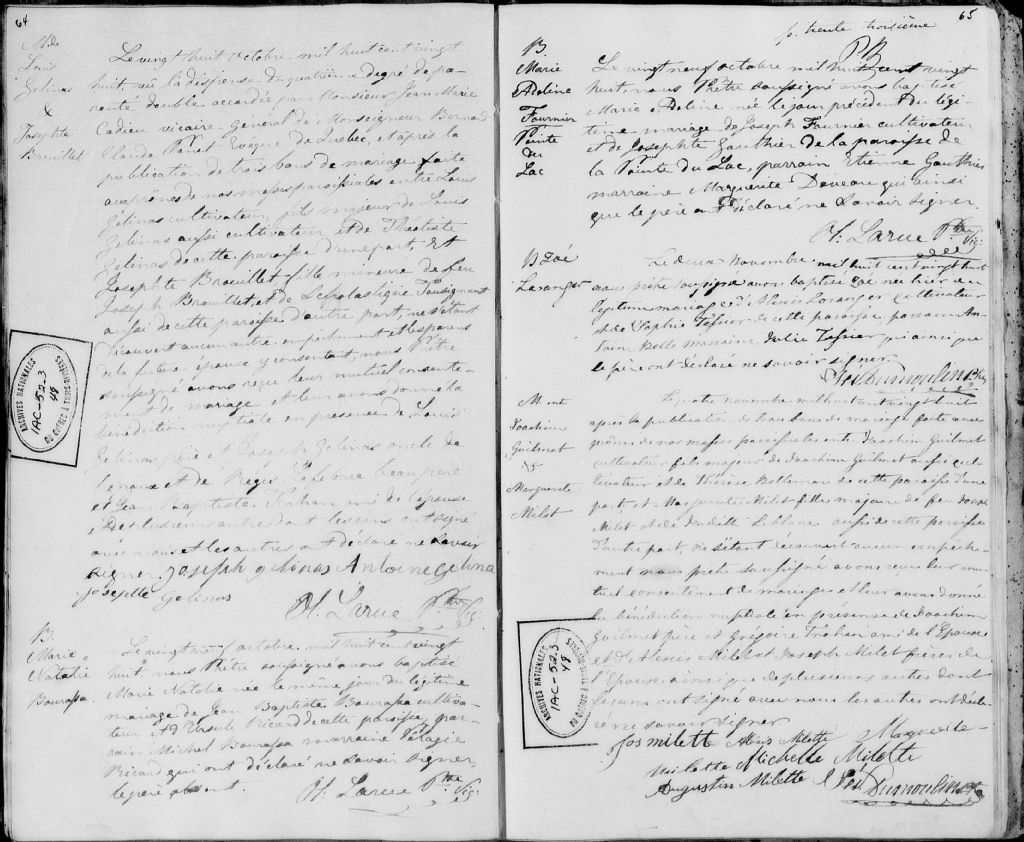 64
Mde
Louis
Gélinas
&
Josephte
Brouillet
Le vingt huit octobre mil huit cent vingt
huit, vû la dispense du quatrième degré de pa-
renté double accordée par Monsieur Jean Marie
Cadieu vicaire Général de Monseigneur Bernard
Claude Panet Evêque de Quebec, et après la
publication de trois bans de mariage faite
aux prônes de nos messes paroissiales entre Louis
Gélinas cultivateur, fils majeur de Louis
Gelinas aussi cultivateur et de Théotiste
Gelinas de cette paroisse d'une part, Et
Josephte Brouillet, fille mineure de feu
Joseph Brouillet, et de Scholastique Tousignant
aussi de cette paroisse d'autre part, ne s'étant
découvert aucun autre empêchement et les parens
de la future épouse y consentant, nous Prêtre
soussigné avons reçu leur mutuel consente-
ment de mariage et leur avons donné la
bénédiction nuptiale en présence de Louis
Gélinas père et Joseph Gélinas oncle de
l'epoux et de Régis beaupère
et Jean Baptiste ami de l'épouse
et de plusieurs autres dont les uns ont signé
avec nous et les autres ont déclaré ne savoir
signer. Joseph gelinas Antoine Gelina
josephte Gelinas
H. Larue Ptre Vic:
B.
Marie
Natalie
Bourassa
Le vingt neuf octobre mil huit cent vingt
huit, nous Prêtre soussigné avons baptisé
Marie Natalie née le même jour du légitime
mariage de Jean Baptiste Bourassa cultiva-
teur et d'Ursule Ricard de cette paroisse, par-
rain Michel Bourassa marraine Pélagie
Ricard qui ont déclaré ne savoir signer,
le père absent.
H. Larue Ptre Vic:
ARCHIVES NATIONALES
IAC-52.3
48
DU QUEBEC A TROIS-RIVIERES
65
f. trente troisième
PB
B.
Marie
Adeline
Fournier
Pointe
du
Lac
Le vingt neuf octobre mil huit cent vingt
huit, nous Prêtre soussigné avons baptisé
Marie Adeline née le jour précédent du légi-
time mariage de Joseph Fournier cultivateur
et de Josephte Gauthier de la paroisse de
la Pointe du Lac, parrain Etienne Gauthier
marraine Marguerite Deveau qui ainsi
que le père ont déclaré ne savoir signer
H. Larue Ptre Vic:
B Zoé
Loranger
Le deux novembre mil huit cent vingt huit
nous prêtre soussigné avons baptisé Zoé née hier du
légitime mariage d'Alexis Loranger cultivateur
et de Sophie Tessier de cette paroisse, parrain An-
toine Belle marraine Julie Tessier qui ainsi que
le père ont déclaré ne savoir signer
S. N. Dumoulin Ptre
M
Joachim
Guilmet
&
Marguerite
Milot
Le quatre novembre mil huit cent vingt huit
après la publication de trois bans de mariage faite aux
prônes de nos messes paroissiales entre Joachim Guilmet
cultivateur fils majeur de Joachim Guilmet aussi cul-
tivateur et de Thérèse Bellemare de cette paroisse d'une
part, et Marguerite Milot fille majeure de feu Joseph
Milot et de Judith Leblanc aussi de cette paroisse
d'autre part, ne s'étant découvert aucun empêche-
ment nous prêtre soussigné avons reçu leur mu-
tuel consentement de mariage et leur avons donné
la bénédiction nuptiale en présence de Joachim
Guilmet père et Grégoire ami de l'Epoux
et d'Alexis Milot et Joseph Milot frères de
l'Epouse ainsi que de plusieurs autres dont
les uns ont signé avec nous les autres ont décla-
ré ne savoir signer
Jos milette Alexis Milette Marguerite
Milette Michelle Milette
Augustin Milette S N Dumoulin Ptre
ARCHIVES NATIONALES
IAC-52.3
48
DU QUEBEC A TROIS-RIVIERES